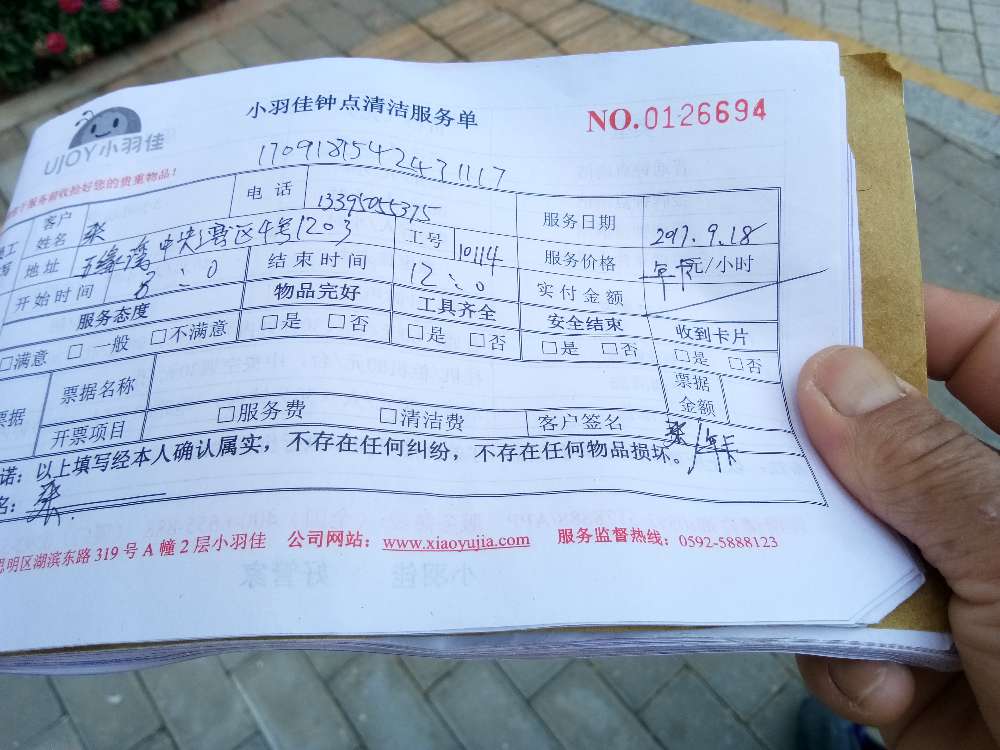 UJOY小羽佳
小羽佳钟点清洁服务单
NO.0126694
170918154243 1117
服务前收捡好您的贵重物品!
客户姓名 张 电话 13395055375 服务日期 2017.9.18
地址 五缘湾中央湾区4号1203 工号 10114 服务价格 年卡元/小时
开始时间 8:0 结束时间 12:0 实付金额
服务态度 物品完好 工具齐全 安全结束 收到卡片
□满意 □一般 □不满意 □是 □否 □是 □否 □是 □否 □是 □否
票据 票据名称 票据金额
开票项目 □服务费 □清洁费 客户签名 张/年卡
诺:以上填写经本人确认属实,不存在任何纠纷,不存在任何物品损坏。
名:张
思明区湖滨东路319号A幢2层小羽佳 公司网站:www.xiaoyujia.com 服务监督热线:0592-5888123